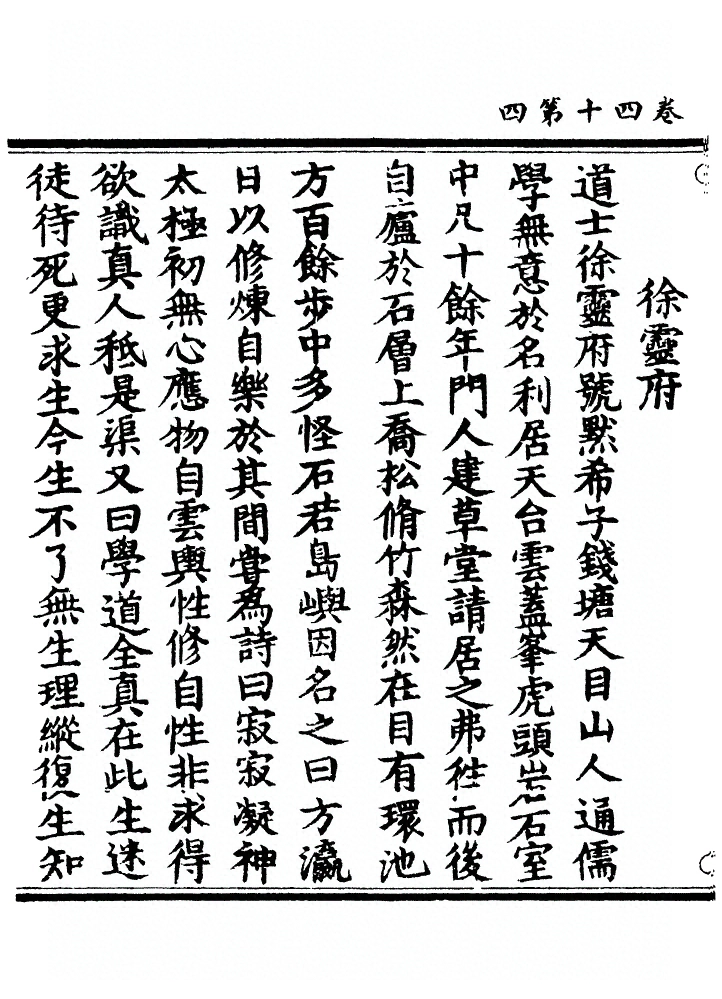 卷四十第四
徐靈府
道士徐靈府號默希子錢塘天目山人通儒
學無意於名利居天台雲蓋峯虎頭岩石室
中凡十餘年門人建草堂請居之弗往而後
自廬於石層上喬松脩竹森然在目有環池
方百餘步中多怪石若島嶼因名之曰方瀛
日以修煉自樂於其間嘗為詩曰寂寂凝神
太極初無心應物自雲輿性修自性非求得
欲識真人秪是渠又曰學道全真在此生迷
徒待死更求生今生不了無生理縱復生知